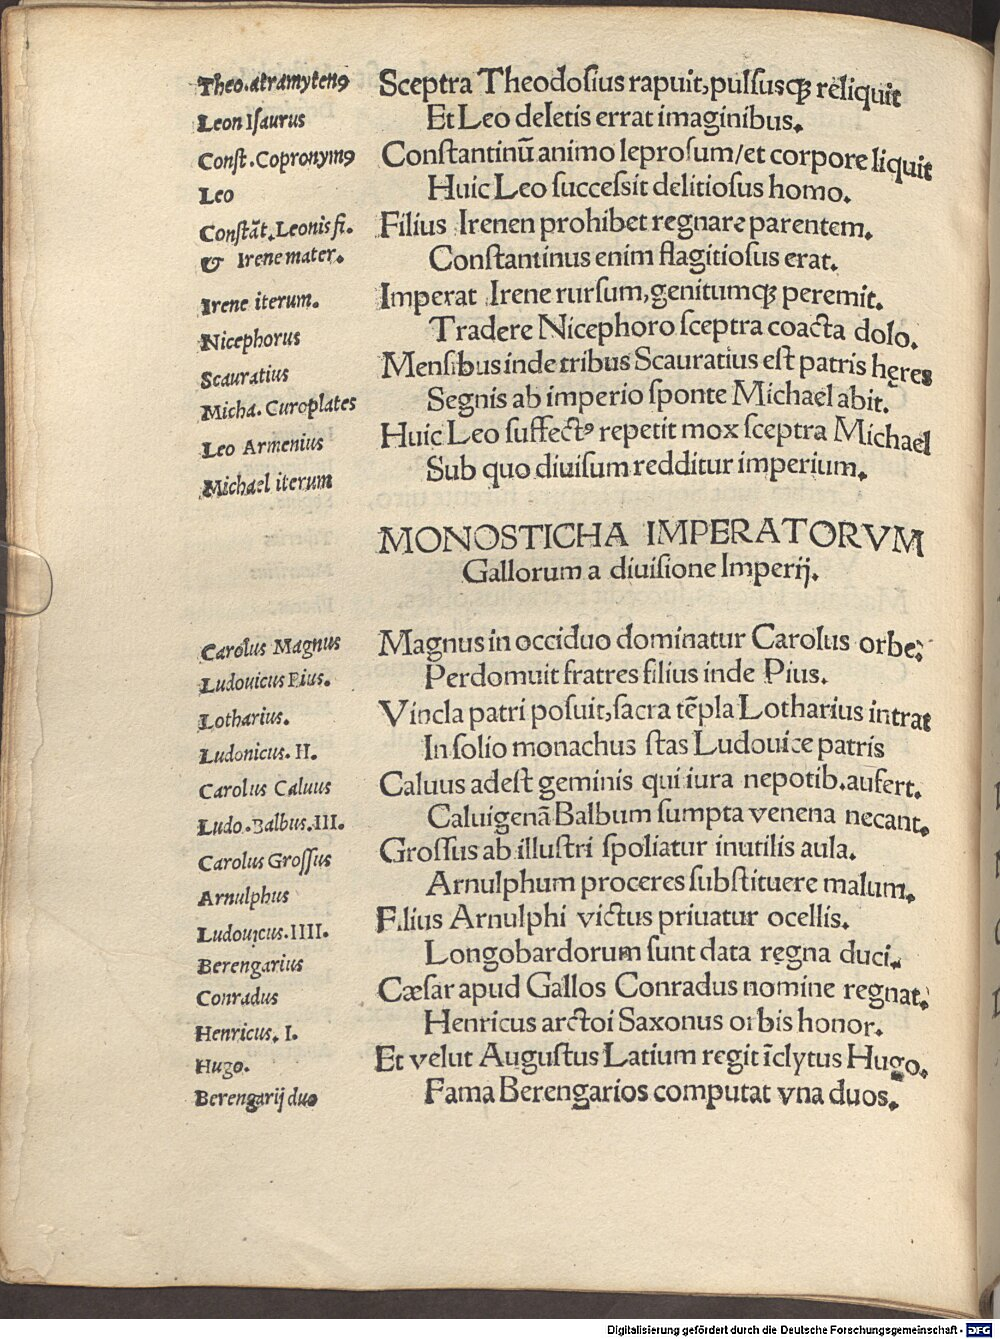 Theo.atramytenꝰ Sceptra Theodoſius rapuit,pulſusqꝫ reliquit
Leon Iſaurus Et Leo deletis errat imaginibus.
Conſt.Copronymꝰ Conſtantinū animo leproſum/et corpore liquit
Leo Huic Leo ſucceſsit delitioſus homo.
Conſtāt.Leonis fi. Filius Irenen prohibet regnare parentem.
& Irene mater. Conſtantinus enim flagitioſus erat.
Irene iterum. Imperat Irene rurſum,genitumqꝫ peremit.
Nicephorus Tradere Nicephoro ſceptra coacta dolo.
Scauratius Menſibus inde tribus Scauratius eſt patris hęres
Micha. Curoplates Segnis ab imperio ſponte Michael abit.
Leo Armenius Huic Leo ſuffectꝰ repetit mox ſceptra Michael
Michael iterum Sub quo diuiſum redditur imperium.
MONOSTICHA IMPERATORVM
Gallorum a diuiſione Imperij.
Carolus Magnus Magnus in occiduo dominatur Carolus orbe:
Ludouicus Pius. Perdomuit fratres filius inde Pius.
Lotharius. Vincla patri poſuit,ſacra tēpla Lotharius intrat
Ludonicus. II. In ſolio monachus ſtas Ludouice patris
Carolus Caluus Caluus adeſt geminis qui iura nepotib.aufert.
Ludo.Balbus.III. Caluigenā Balbum ſumpta venena necant.
Carolus Groſſus Groſſus ab illuſtri ſpoliatur inutilis aula.
Arnulphus Arnulphum proceres ſubſtituere malum.
Ludouicus.IIII. Filius Arnulphi victus priuatur ocellis.
Berengarius Longobardorum ſunt data regna duci.
Conradus Cæſar apud Gallos Conradus nomine regnat.
Henricus. I. Henricus arctoi Saxonus orbis honor.
Hugo. Et velut Auguſtus Latium regit īclytus Hugo.
Berengarij duo Fama Berengarios computat vna duos.
Digitalisierung gefördert durch die Deutsche Forschungsgemeinschaft - DFG